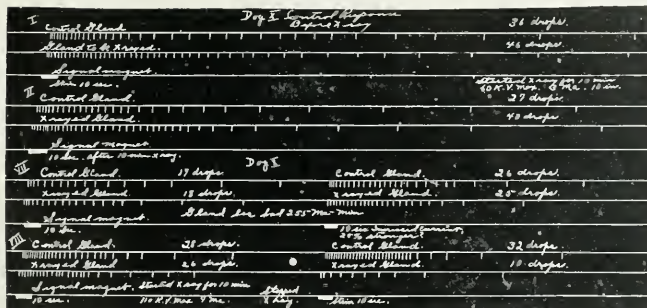 Dog X Control Response
Before X ray
I Control Gland 36 drops.
Gland to be Xrayed. 46 drops.
Signal magnet
Stim 10 sec.
Started X ray for 10 min
60 K.V. max. 6 Ma. 10 in.
II Control Gland. 27 drops.
Xrayed Gland 40 drops
Signal magnet
10 Sec. after 10 min X ray.
Dog X
VII Control Gland. 17 drops Control Gland. 26 drops.
Xrayed Gland. 18 drops. Xrayed Gland. 25 drops.
Signal magnet. Gland has had 255 Ma-min
10 Sec. 10 sec Increased Current
25% stronger?
VIII Control Gland. 28 drops. Control Gland. 32 drops
Xrayed Gland 26 drops. Xrayed Gland. 10 drops.
Signal magnet. Started X ray for 10 min Stopped
10 sec. 110 K.V. max 9 Ma. X ray. Stim 10 sec.